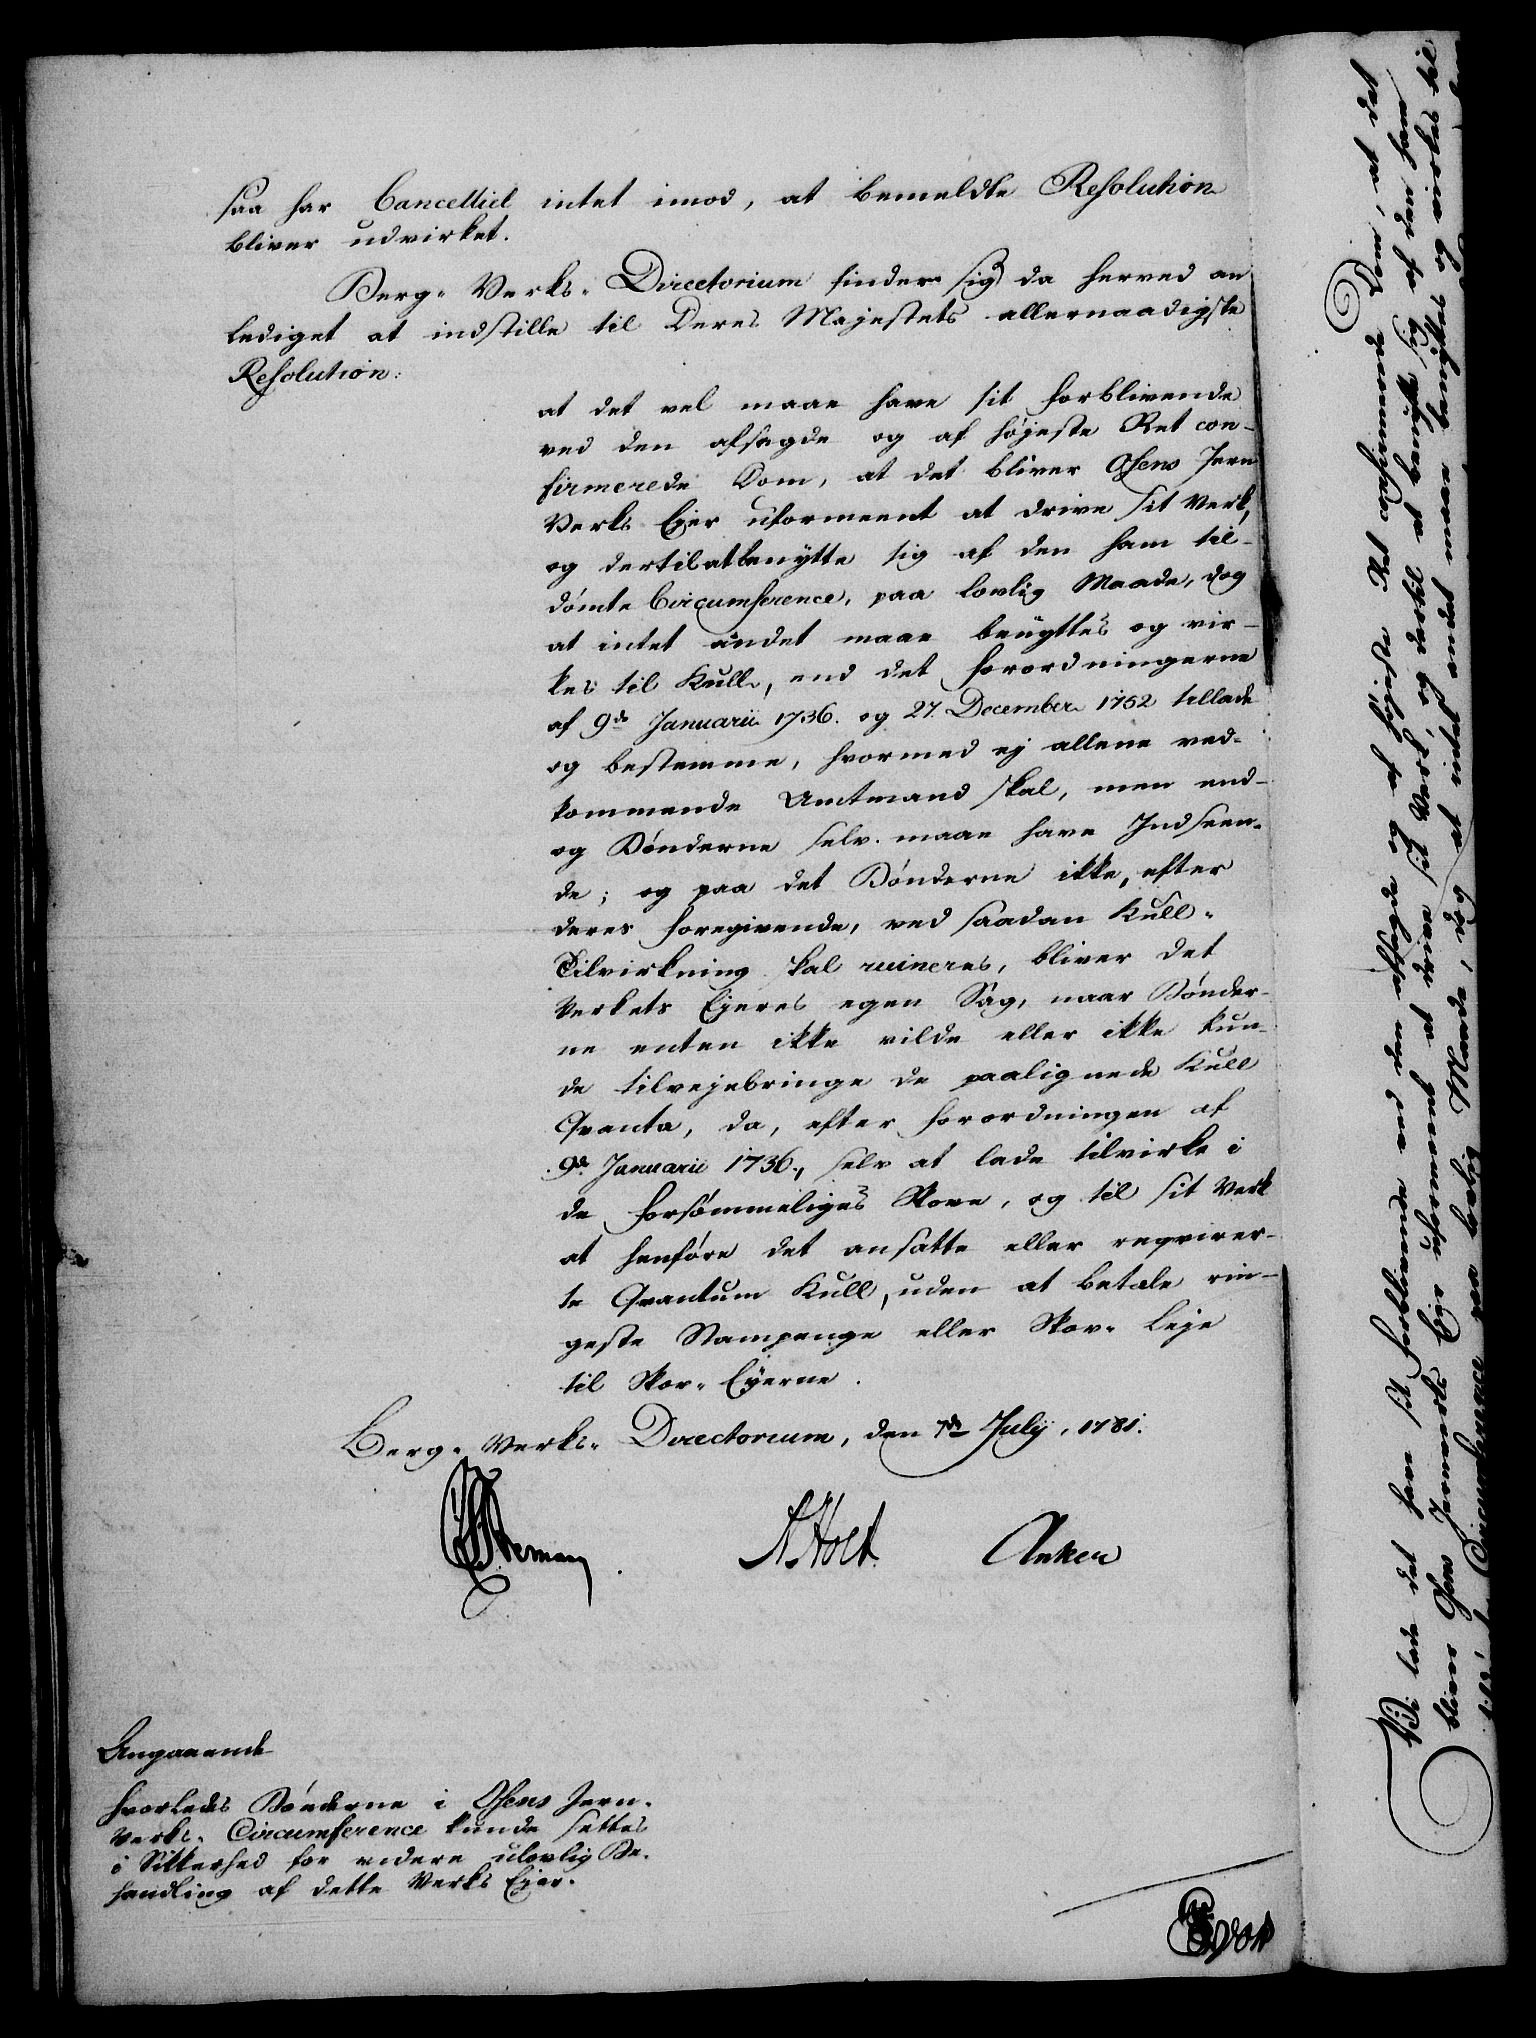 saa har Cancelliet intet imod, at bemeldte Resolution
bliver udvirket.
Berg- Verks- Directorium finder sig da herved an
lediget at indstille til Deres Majestets allernaadigste
Resolution:
at det vel maae have sit forblivende
ved den afsagde og af højeste Ret con-
firmerede Dom, at det bliver Osens Jern
Verks Ejer uformeent at drive sit Verk,
og dertil at benytte sig af den ham til-
dömte Circumference, paa lovlig Maade, dog
at intet andet maae benyttes og vir-
kes til Kull, end det Forordningerne
af 9de Januarii 1736. og 27. December 1752 tillade
og bestemme, hvormed ej allene ved-
kommende Amtmand skal, men end-
og Bönderne selv maae have Indseen-
de; og paa det Bönderne ikke, efter
deres foregivende, ved saadan Kull-
Tilvirkning skal ruineres, bliver det
Verkets Ejeres egen Sag, naar Bönder-
ne enten ikke vilde eller ikke kun-
de tilvejebringe de paalignede Kull
Qvanta, da, efter Forordningen af
9de Januarii 1736., selv at lade tilvirke i
de forsömmeliges Skove, og til sit Verk
at henföre det ansatte eller reqvirer-
te Qvantum Kull, uden at betale rin-
geste Stampenge eller Skov- Leje
til Skov- Ejerne.
Berg- Verks- Directorium, den 7de July, 1781.
A Holt Anker
Angaaende
hvorledes Bönderne i Osens Jern-
Verks- Circumference kunde settes
i Sikkerhed for videre ulovlig Be-
handling af dette Verks Ejer.
Vi lade det have sit forblivende ved den afsagde og af höjeste Ret confirmerede Dom, at det
bliver Osens Jernverks Ejer uformeent at drive sit Verk, og dertil at benytte sig af den ham
Circumference paa lovlig Maade, dog at intet andet maae benyttes og virkes til